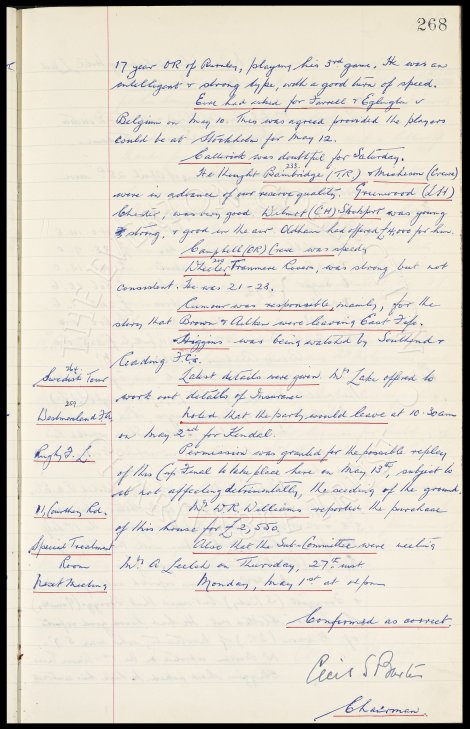 268
17 year OR of Burnley, playing his 3rd game. He was an
intelligent & strong type, with a good turn of speed.
Eire had asked for Farrell & Eglington v
Belgium on May 10. This was agreed provided the players
could be at Stockholm for May 12.
was doubtful for Saturday.
233
He thought Bainbridge (T.R.) & (Crewe)
were in advance of our reserve quality. Greenwood (LH)
Chester, was very good. Wilmot (CH) Stockport was young
& strong, & good in the air. Oldham had offered £4,000 for him.
Campbell (OR) Crewe was speedy
Tranmere Rovers, was strong but not
consistent. He was 21-23.
Rumour was responsible, mainly, for the
story that Brown & Aitken were leaving East Fife.
Higgins was being watched by Southend &
Reading F.Cs.
Swedish Tour
Latest details were given. Mr Lake offered to
work out details of Insurance
Westmorland F.A.
Noted that the party would leave at 10.30am
on May 2nd for Kendal.
Rugby F.L.
Permission was granted for the possible replay
of this Cup Final to take place here on May 13th, subject to
it not affecting detrimentally, the seeding of the ground.
Rd.
Mr W.R. Williams reported the purchase
of this house for £2,550.
Special Treatment
Room
Also that the Sub-Committee were meeting
Mr A. Leitch on Thursday, 27th inst
Next Meeting
Monday, May 1st at 4pm
Confirmed as correct.
Cecil S Baxter
Chairman.